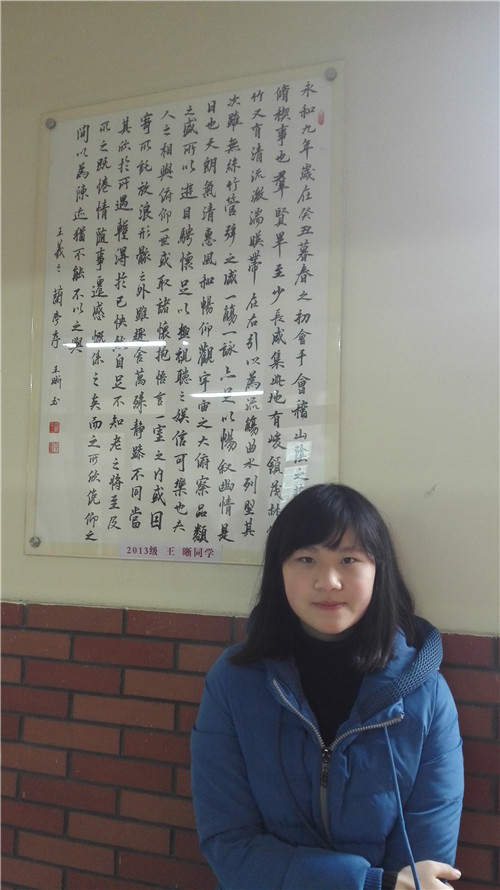 永和九年歲在癸丑暮春之初會于會稽山陰之
脩稧事也羣賢畢至少長咸集此地有峻領茂林
竹又有清流激湍暎帶左右引以為流觴曲水列坐其
次雖無絲竹管弦之盛一觴一詠亦足以暢叙幽情是
日也天朗氣清惠風和暢仰觀宇宙之大俯察品類
之盛所以遊目騁懷足以極視聽之娛信可樂也夫
人之相與俯仰一世或取諸懷抱悟言一室之内或因
寄所託放浪形骸之外雖趣舍萬殊靜躁不同當
其欣於所遇蹔得於己快然自足不知老之將至及
所之既惓情隨事遷感慨係之矣向之所欣俛仰之
間以為陳迹猶不能不以之興
王羲之 蘭亭序 王晰书
2013级 王 晰同学